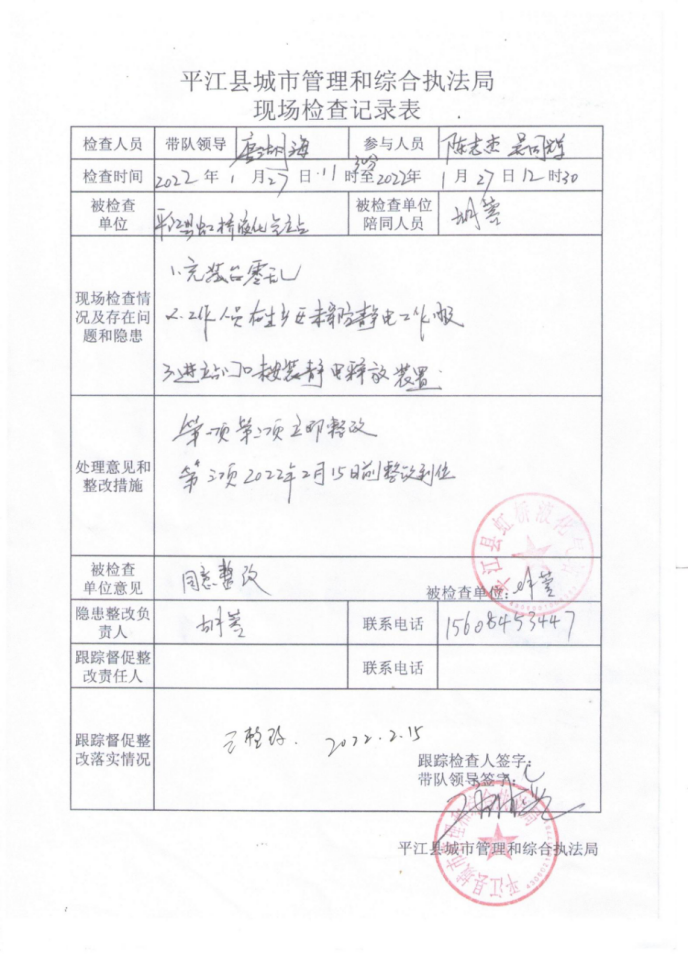 平江县城市管理和综合执法局
现场检查记录表
检查人员 带队领导 参与人员 陈志杰
检查时间 2022年1月27日11时30分至2022年1月27日12时30
被检查单位 平江县虹桥液化气站 被检查单位陪同人员
现场检查情况及存在问题和隐患
1.充装台零乱
2.工作人员在生产区未穿防静电工作服
3.进站门口未按装静电释放装置.
处理意见和整改措施
第一项第二项立即整改
第三项2022年2月15日前整改到位
被检查单位意见 同意整改 被检查单位:
隐患整改负责人 联系电话 15608453447
跟踪督促整改责任人 联系电话
跟踪督促整改落实情况
已整改. 2022.2.15
跟踪检查人签字:
带队领导签字:
平江县城市管理和综合执法局